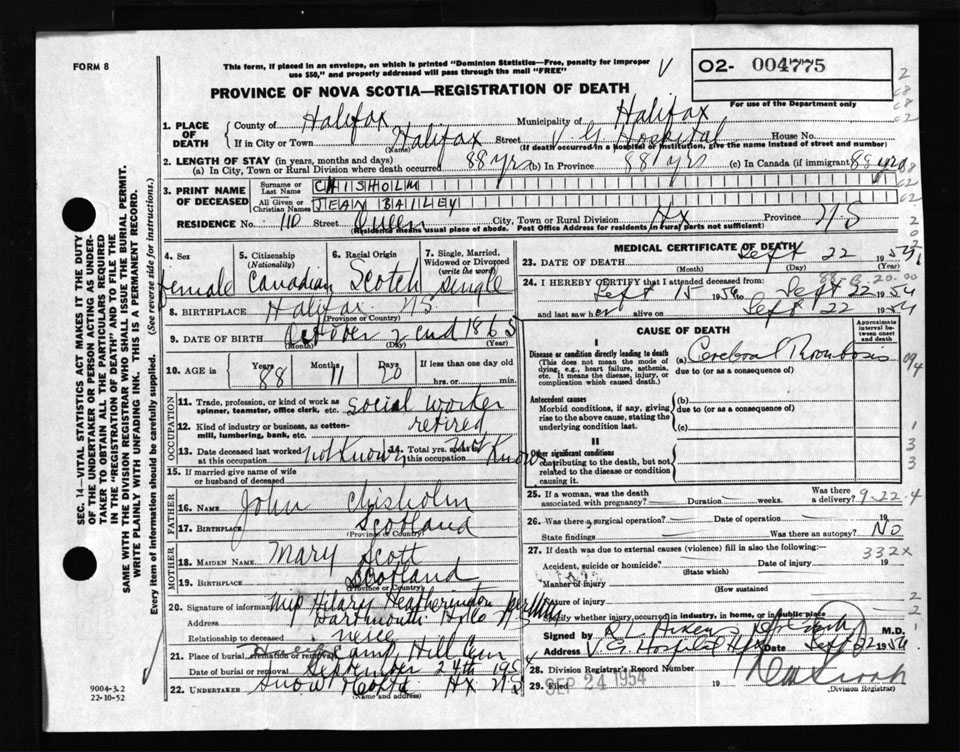 FORM 8
This form, if placed in an envelope, on which is printed "Dominion Statistics—Free, penalty for improper
use $50," and properly addressed will pass through the mail "FREE"
02- 004775
For use of the Department only
PROVINCE OF NOVA SCOTIA—REGISTRATION OF DEATH
1. PLACE OF DEATH
County of Halifax Municipality of Halifax
If in City or Town Halifax Street V. G. Hospital House No.
(Name) (If death occurred in a hospital or institution, give the name instead of street and number)
2. LENGTH OF STAY (in years, months and days)
(a) In City, Town or Rural Division where death occurred 88 yrs (b) In Province 88 yrs (c) In Canada (if immigrant) 88 yrs
3. PRINT NAME OF DECEASED
Surname or Last Name CHISHOLM
All Given or Christian Names JEAN BAILEY
RESIDENCE No. 110 Street Queen City, Town or Rural Division Hx Province N S
(Residence means usual place of abode. Post Office Address for residents in rural parts not sufficient)
4. Sex female
5. Citizenship (Nationality) Canadian
6. Racial Origin Scotch
7. Single, Married, Widowed or Divorced (write the word) Single
8. BIRTHPLACE Halifax NS
(Province or Country)
9. DATE OF BIRTH October 2nd 1865
(Month) (Day) (Year)
10. AGE in Years 88 Months 11 Days 20 If less than one day old
hrs. or min.
OCCUPATION
11. Trade, profession, or kind of work as
spinner, teamster, office clerk, etc. social worker
12. Kind of industry or business, as cotton-
mill, lumbering, bank, etc. retired
13. Date deceased last worked at this occupation Not Known
14. Total yrs. spent in this occupation Not Known
15. If married give name of wife
or husband of deceased
FATHER
16. NAME John Chisholm
17. BIRTHPLACE Scotland
(Province or Country)
MOTHER
18. MAIDEN NAME Mary Scott
19. BIRTHPLACE Scotland
(Province or Country)
20. Signature of informant Hilary Heatherington per
Address Dartmouth N S
Relationship to deceased niece
21. Place of burial, cremation or removal Camp Hill Cem
Date of burial or removal September 24th 1954
22. UNDERTAKER Snow Hx NS
(Name and address)
MEDICAL CERTIFICATE OF DEATH
23. DATE OF DEATH Sept 22 1954
(Month) (Day) (Year)
24. I HEREBY CERTIFY that I attended deceased from:
Sept 15 1954 to Sept 22 1954
and last saw her alive on Sept 22 1954
CAUSE OF DEATH
Approximate interval between onset and death
I
Disease or condition directly leading to death
(This does not mean the mode of
dying, e.g., heart failure, asthenia,
etc. It means the disease, injury, or
complication which caused death.)
(a) Cerebral Thrombosis
due to (or as a consequence of)
Antecedent causes
Morbid conditions, if any, giving
rise to the above cause, stating the
underlying condition last.
(b)
due to (or as a consequence of)
(c)
II
Other significant conditions
contributing to the death, but not
related to the disease or condition
causing it.
25. If a woman, was the death
associated with pregnancy? Duration weeks. Was there a delivery?
9-22-4
26. Was there a surgical operation? Date of operation 19
State findings Was there an autopsy? No
27. If death was due to external causes (violence) fill in also the following:—
332X
Accident, suicide or homicide? Date of injury 19
(State which)
Manner of injury
(How sustained)
Nature of injury
Specify whether injury occurred in industry, in home, or in public place
Signed by M.D.
Address V. G. Hospital Hfx Date Sept 22 1954
28. Division Registrar's Record Number
29. Filed SEP 24 1954 19
(Division Registrar)
9004-3.2
22-10-52
SEC. 14—VITAL STATISTICS ACT MAKES IT THE DUTY
OF THE UNDERTAKER OR PERSON ACTING AS UNDER-
TAKER TO OBTAIN ALL THE PARTICULARS REQUIRED
IN THE "REGISTRATION OF DEATH" AND TO FILE THE
SAME WITH THE DIVISION REGISTRAR WHO SHALL ISSUE THE BURIAL PERMIT.
WRITE PLAINLY WITH UNFADING INK. THIS IS A PERMANENT RECORD.
Every item of information should be carefully supplied. (See reverse side for instructions.)